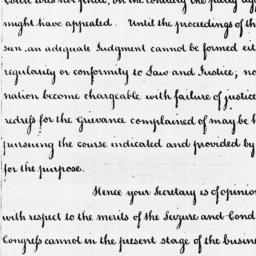 might have appealed. Until the proceedings of th
seen, an adequate Judgment cannot be formed eit
regularity or conformity to Law and Justice; no
nation become chargeable with failure of justice
redress for the Grievance complained of may be h
pursuing the course indicated and provided by
for the purpose.
Hence your Secretary is of opinion
with respect to the merits of the Seizure and Cond
Congress cannot in the present stage of the busine